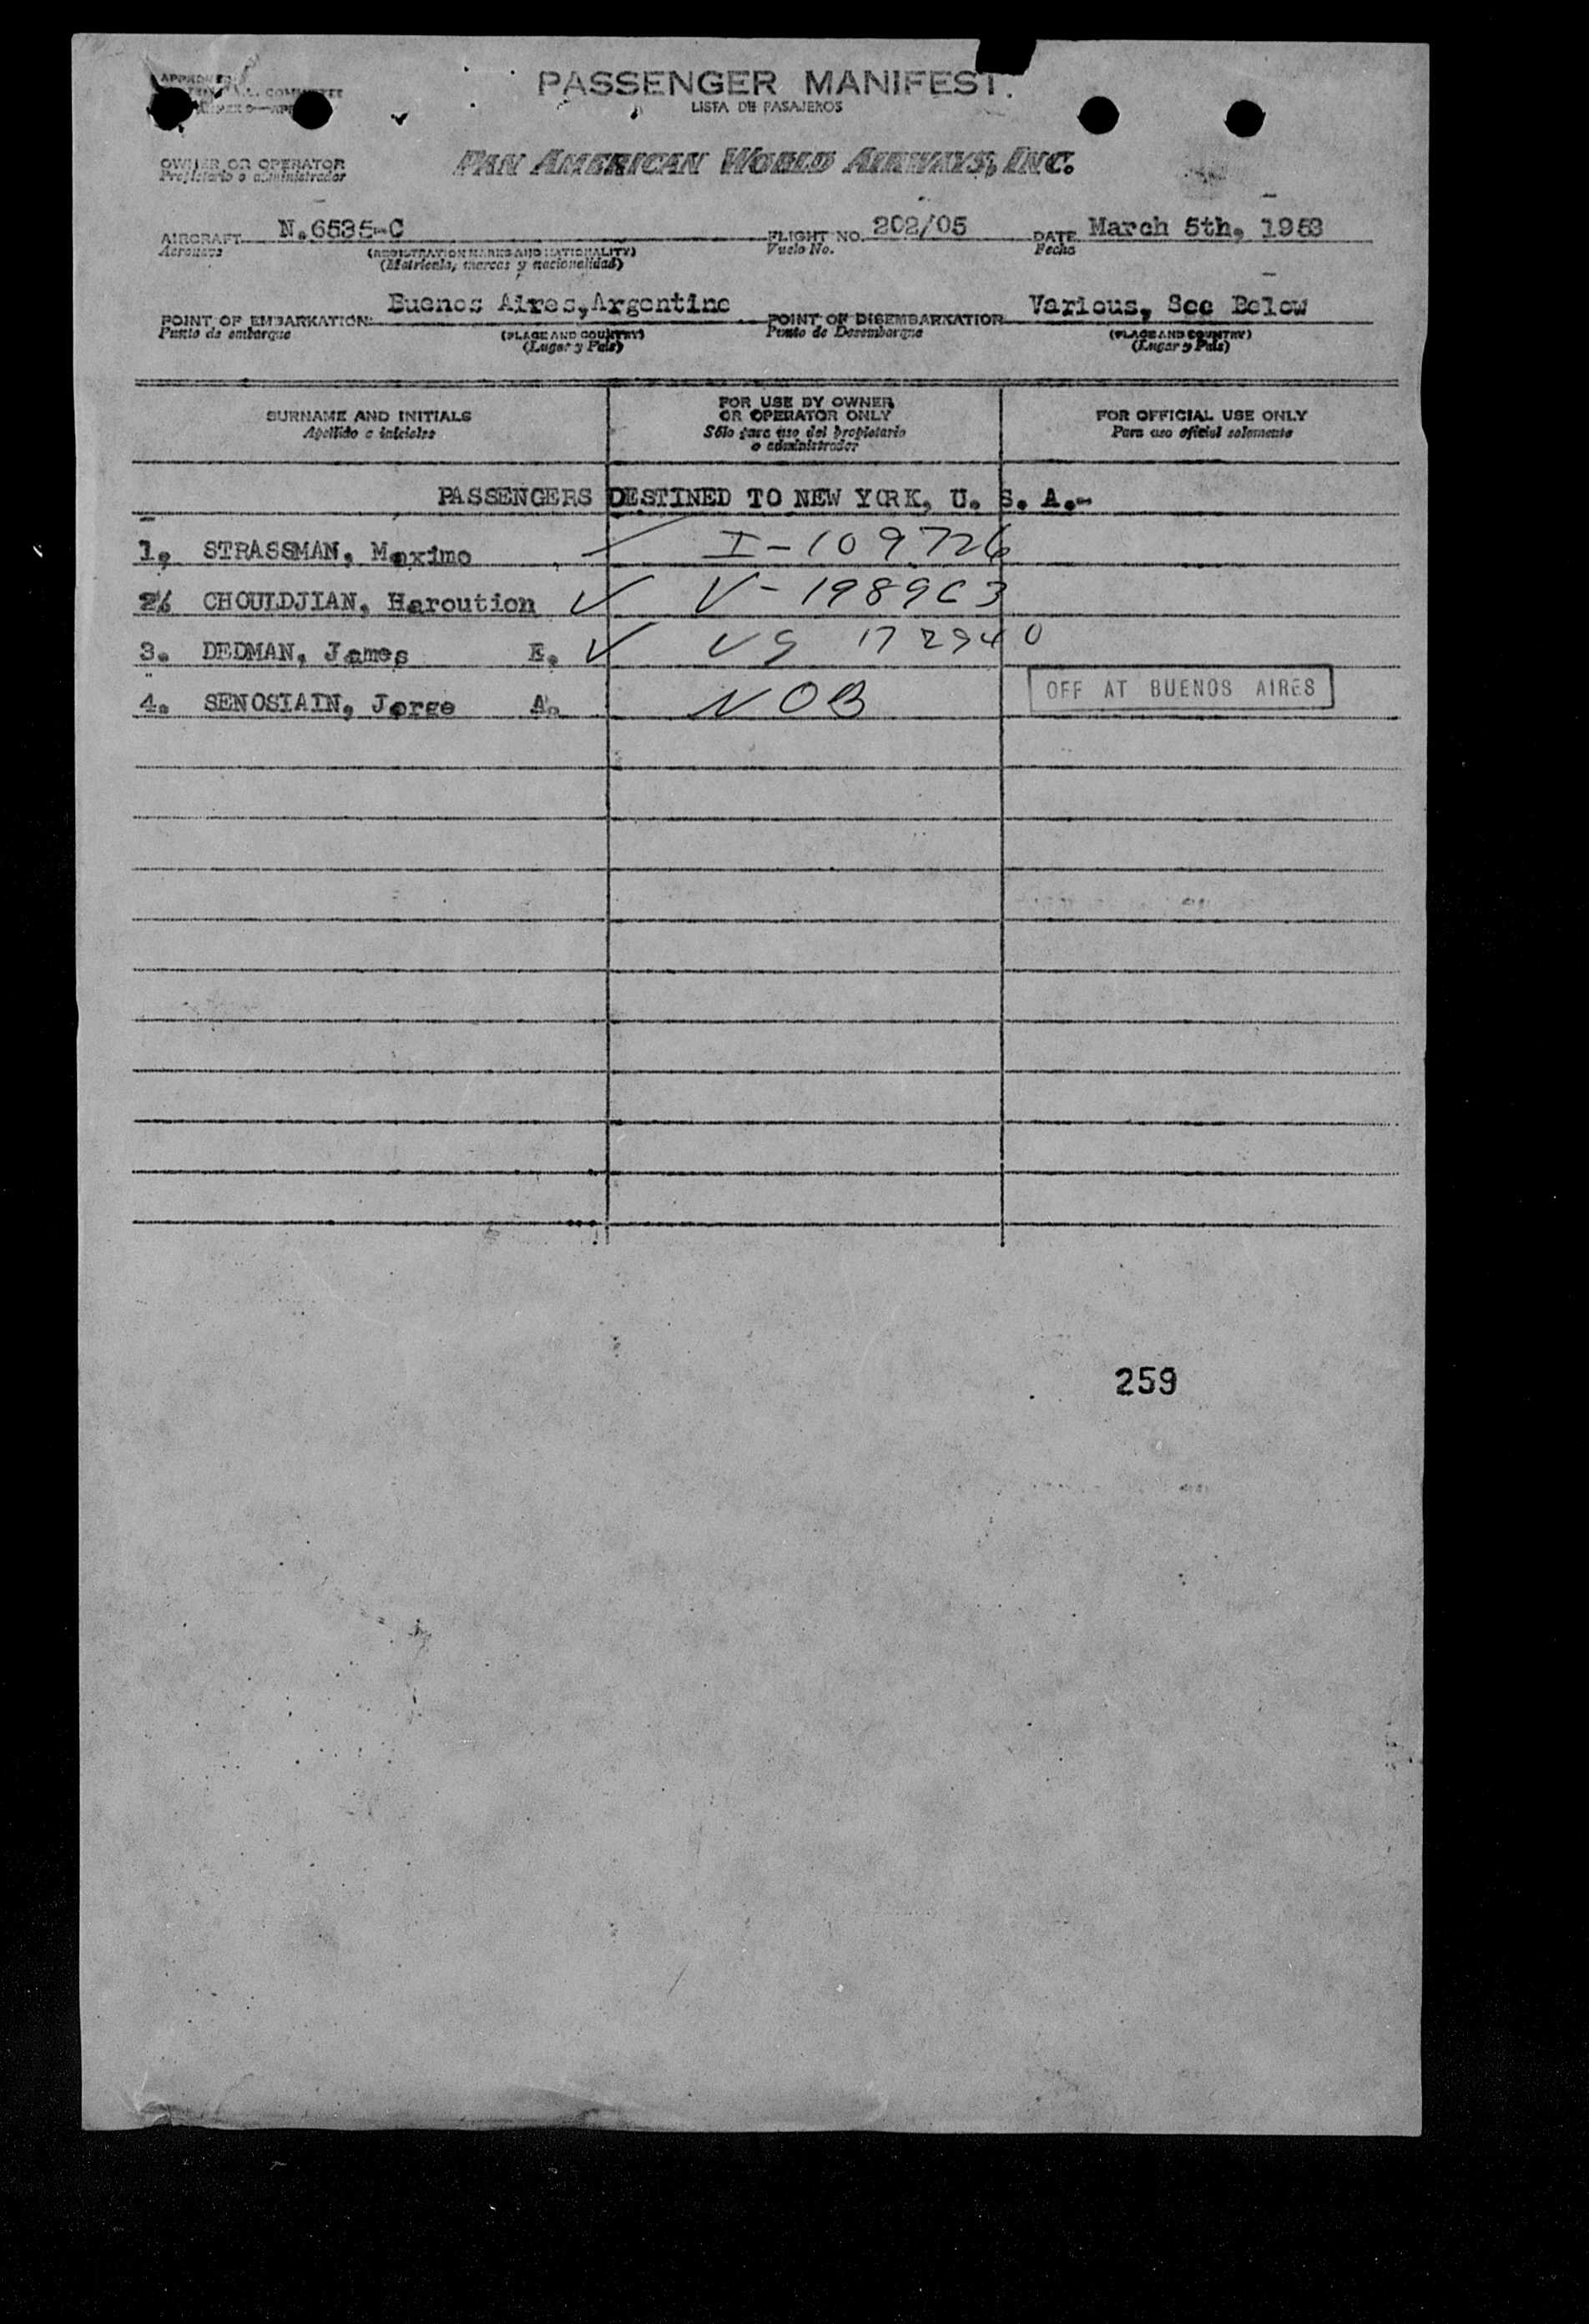 PASSENGER MANIFEST.
LISTA DE PASAJEROS
OWNER OR OPERATOR
Propietario o administrador
PAN AMERICAN WORLD AIRWAYS, INC.
AIRCRAFT N.6535-C FLIGHT NO. 202/05 DATE March 5th, 1953
Aeronave (REGISTRATION MARKS AND NATIONALITY) Vuelo No. Fecha
(Matrícula, marcas y nacionalidad)
POINT OF EMBARKATION Buenos Aires,Argentine POINT OF DISEMBARKATION Various, See Below
Punto de embarque (PLACE AND COUNTRY) Punto de Desembarque (PLACE AND COUNTRY)
(Lugar y País) (Lugar y País)
SURNAME AND INITIALS
Apellido e iniciales
FOR USE BY OWNER
OR OPERATOR ONLY
Sólo para uso del propietario
o administrador
FOR OFFICIAL USE ONLY
Para uso oficial solamente
PASSENGERS DESTINED TO NEW YORK, U. S. A.-
1. STRASSMAN, Maximo I-109726
2. CHOULDJIAN, Haroution V-198963
3. DEDMAN, James E. 172940
4. SENOSIAIN, Jorge A. NOB OFF AT BUENOS AIRES
259